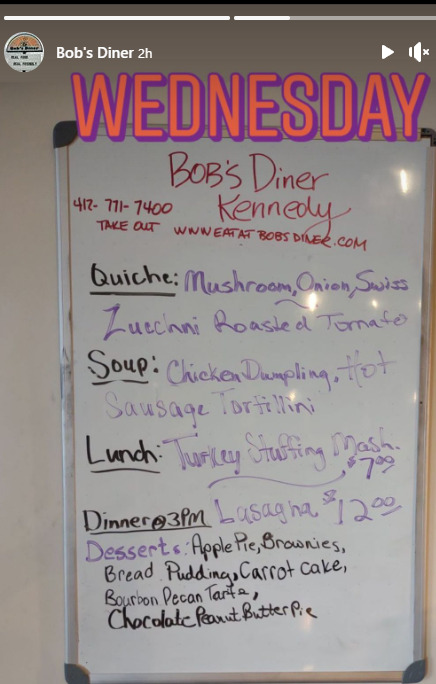 Bob's Diner
REAL FOOD
REAL FRIENDLY
Bob's Diner 2h
WEDNESDAY
BOB'S Diner
412-771-7400 Kennedy
TAKE OUT WWW.EATATBOBSDINER.COM
Quiche: Mushroom, Onion, Swiss
Zucchni Roasted Tomato
Soup: Chicken Dumpling, Hot
Sausage Tortillini
Lunch: Turkey Stuffing Mash.
$7.00
Dinner@3PM Lasagna $12.00
Desserts: Apple Pie, Brownies,
Bread Pudding, Carrot cake,
Bourbon Pecan Tarts,
Chocolate Peanut Butter Pie